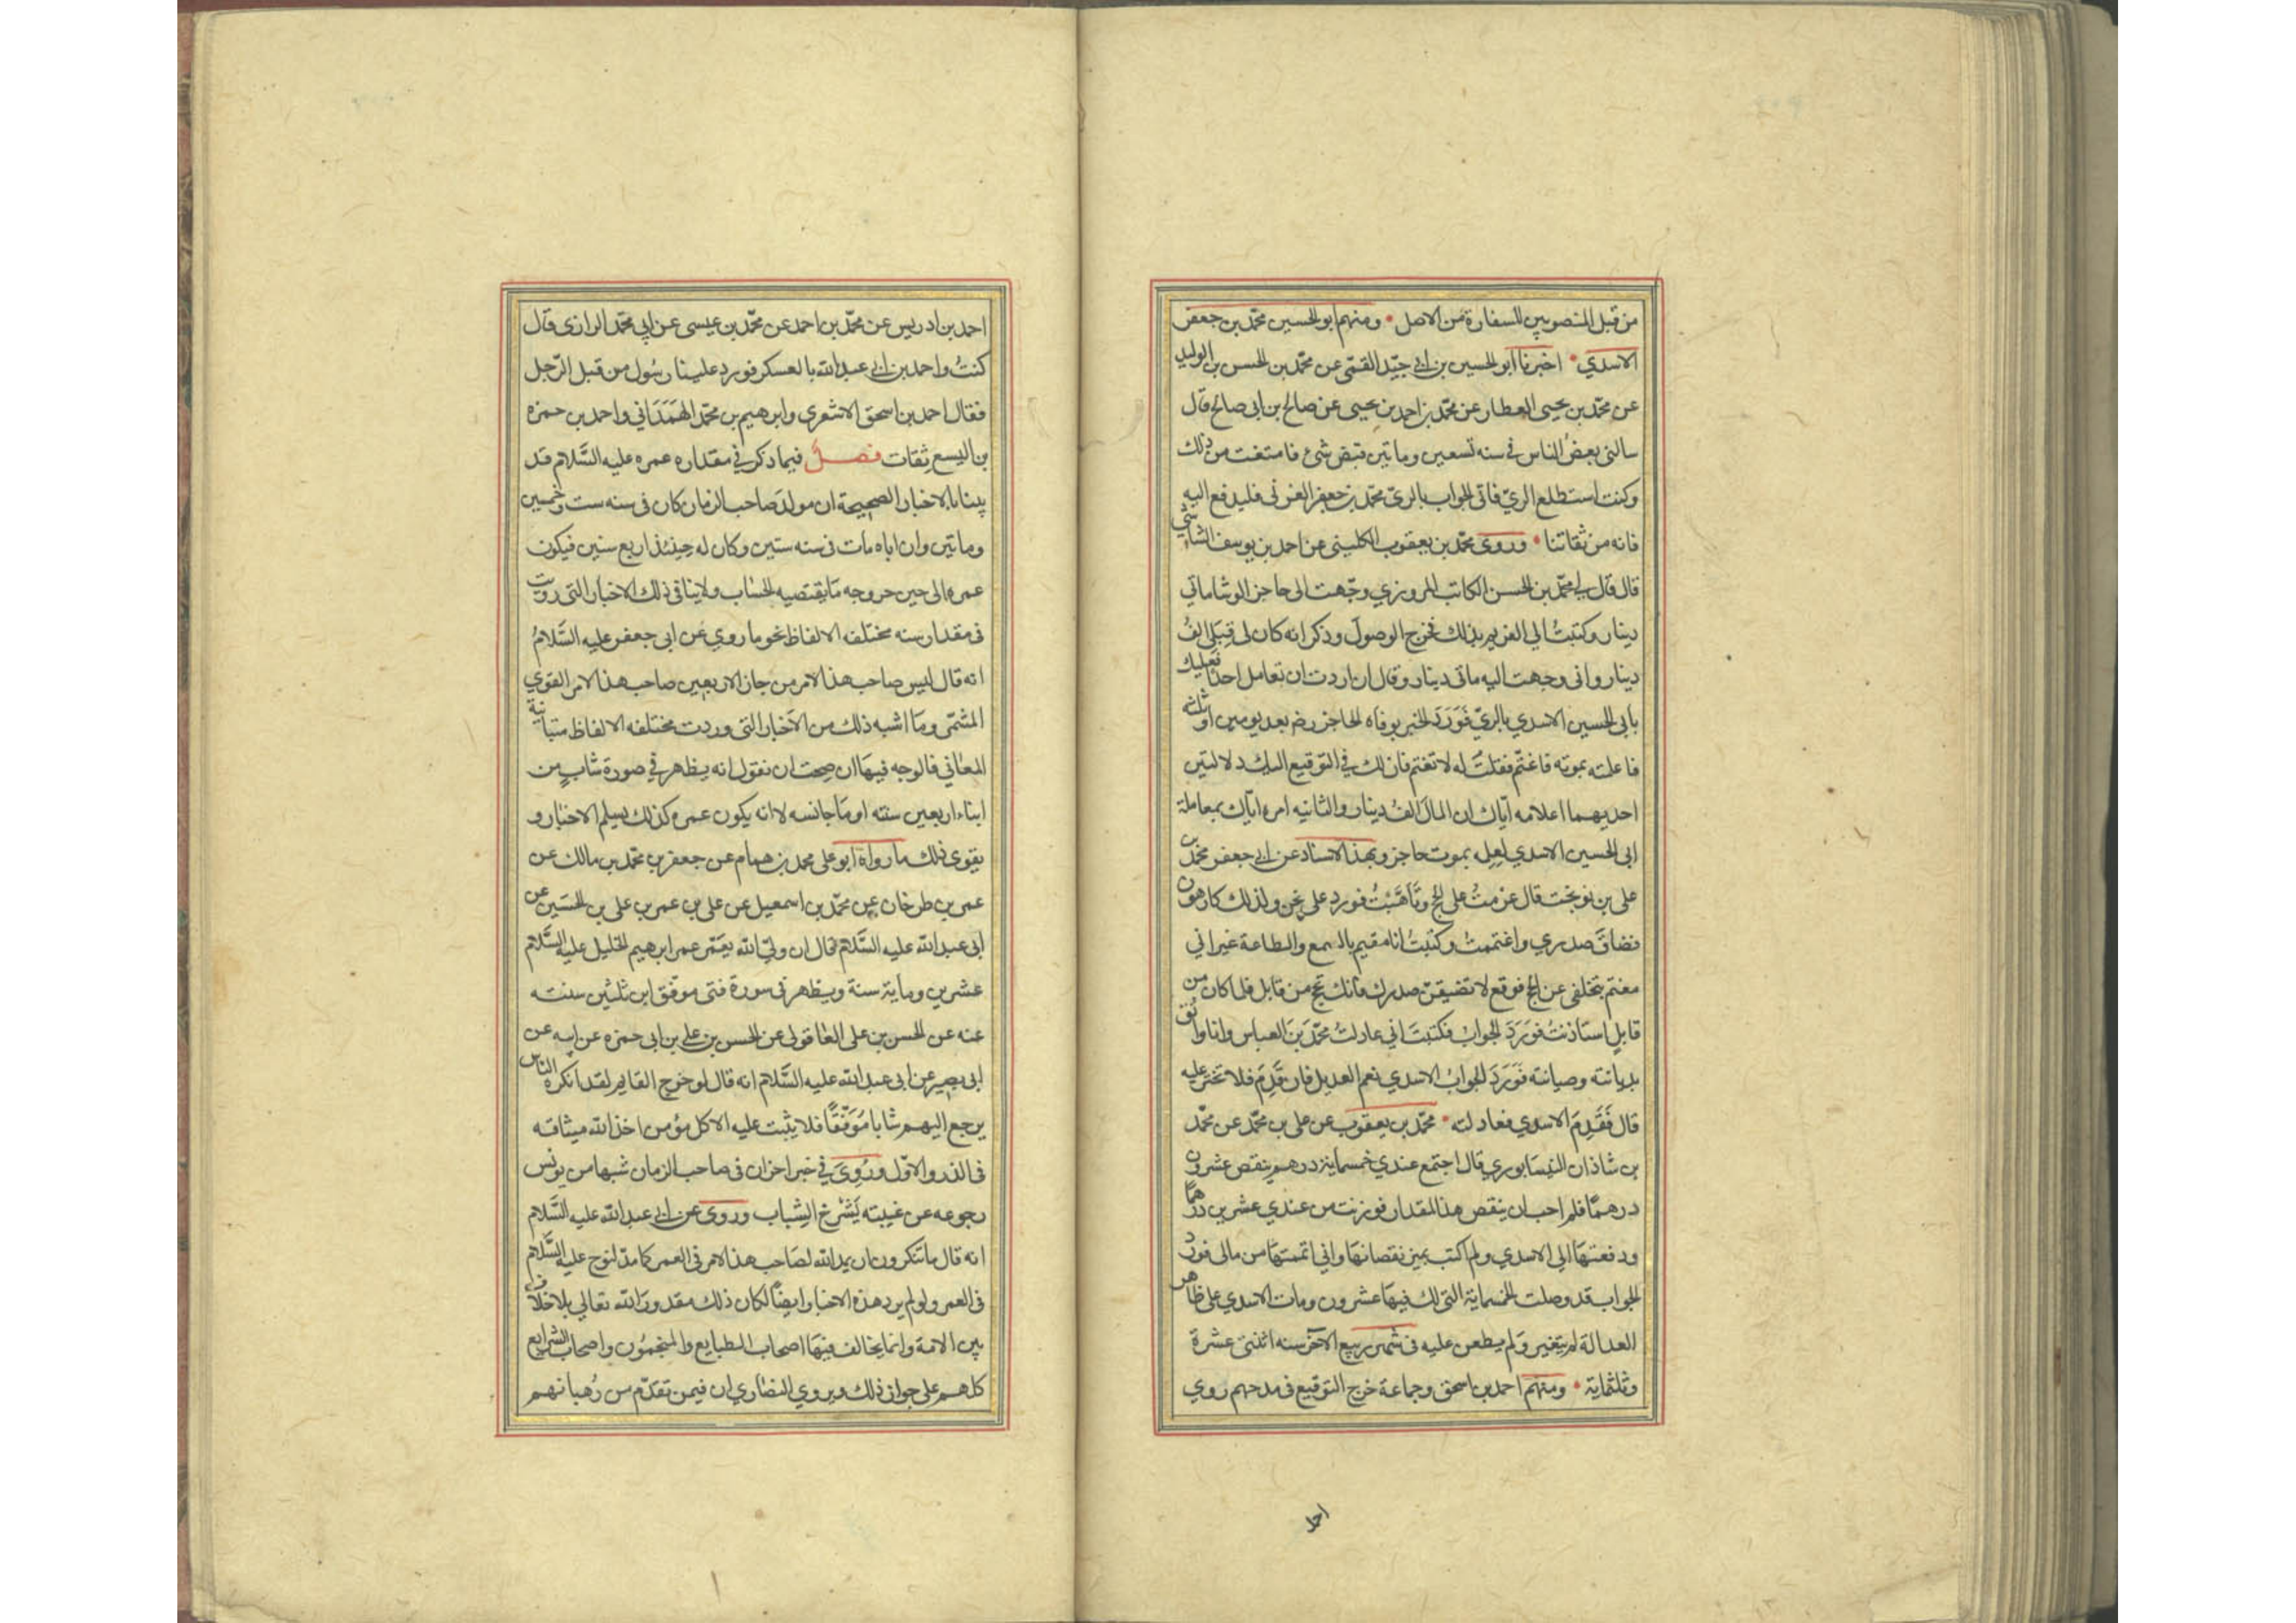 من قبل المنصوبين للسفارة من الاصل • ومنهم ابو الحسين محمد بن جعفر
الاسدي • اخبرنا ابو الحسين بن ابي جيّد القمّي عن محمّد بن الحسن بن الوليد
عن محمّد بن يحيى العطار عن محمّد بن احمد بن يحيى عن صالح بن ابى صالح قال
سالنى بعضُ الناس فى سنه تسعين وماتين قبض شئ فامتنعت من ذلك
وكنت استطلع الريّ فاتى الجواب بالرىّ محمّد بن جعفر العزنى فليدفع اليه
فانه من ثقاتنا • وروى محمّد بن يعقوب الكلينى عن احمد بن يوسف الشاشي
قال قال لى محمّد بن الحسن الكاتب المروزي وجّهت الى حاجز الوشا ماتي
دينار وكتبتُ الى الغريم بذلك فخرج الوصول وذكر انه كان لى قِبَلى الفُ
دينار وانى وجهت اليه ماتى دينار وقال ان اردت ان تعامل احدا فعليك
بابى الحسين الاسدي بالريّ فَوَرَدَ الخبر بوفاه الحاجز رضه بعد يومين او ثلثه
فاعلمته بموته فاغتمّ فقلتُ له لا تغتم فان لك فى التوقيع اليك دلالتين
احديهما اعلامه ايّاك ان المال الف دينار والثانيه امره ايّاك بمعاملة
ابى الحسين الاسدي لعلمه بموت حاجز وبهذا الاسناد عن ابى جعفر محمّد بن
على بن نوبخت قال عزمتُ على الحج وتأهّبتُ فورد على نحن ولذلك كارهون
فضاقَ صدري واغتممتُ وكتبتُ انا مقيم بالسمع والطاعة غير اني
مغتم بتخلفى عن الحج فوقع لا تضيقنّ صدرك فانك تحج من قابل فلما كان من
قابلٍ استاذنتُ فوَرَدَ الجوابُ فكتبتُ اني عادلتُ محمّد بن العباس وانا واثق
بديانته وصيانته فَوَرَدَ الجوابُ الاسدي نعم العديل فان قَدِمَ فلا تختر عليه
قال فَقَدِمَ الاسدي فعادلته • محمّد بن يعقوب عن على بن محمّد عن محمّد
بن شاذان النيسابوري قال اجتمع عندي خمسماية درهم ينقص عشرون
درهمًا فلم احب ان ينقص هذا المقدار فوزنت من عندي عشرين درهمًا
ودفعتها الى الاسدي ولم اكتب بمبز نقصانها واني اتممتها من مالى فورد
الجواب قد وصلت الخمسماية التى لك فيها عشرون ومات الاسدي على ظاهر
العدالة لم يتغير ولم يطعن عليه فى شهر ربيع الاخر سنه اثنتى عشرة
وثلثماية • ومنهم احمد بن اسحق وجماعة خرج التوقيع فى مدحهم روي
احمد
احمد بن ادريس عن محمّد بن احمد عن محمّد بن عيسى عن ابى محمّد الرازى قال
كنتُ واحمد بن ابى عبد الله بالعسكر فورد علينا رسول من قبل الرّجل
فقال احمد بن اسحق الاشعري وابرهيم بن محمّد الهَمَدَاني واحمد بن حمزه
بن اليسع ثقات فصلٌ فيما ذكر في مقداره عمره عليه السَّلام قد
بينا بالاخبار الصحيحة ان مولد صاحب الزمان كان فى سنه ست وخمسين
وماتين وان اباه مات فى سنه ستين وكان له حينئذ اربع سنين فيكون
عمره الى حين خروجه ما يقتضيه الحساب ولا ينافى ذلك الاخبار التى رويت
فى مقدار سنه مختلفه الالفاظ نحو ما روي عن ابى جعفر عليه السَّلامُ
انه قال ليس صاحب هذا الامر من جاز الاربعين صاحب هذا الامر القوي
المشمّر وما اشبه ذلك من الأخبار التى وردت مختلفه الالفاظ متباينة
المعاني فالوجه فيها ان صحت ان نقول انه يظهر في صورة شابٍ من
ابناء اربعين سنته او ما جانسه لا انه يكون عمره كذلك يسلم الاخبار و
يقوى ذلك ما رواة ابو على محمد بن همام عن جعفر بن محمّد بن مالك عن
عمر بن طرخان عن محمّد بن اسمعيل عن على بن عمر بن على بن الحسَين عن
ابى عبد الله عليه السَّلام قال ان وليّ الله يعمّر عمر ابرهيم الخليل عليه السَّلام
عشرين وماية سنة ويظهر فى سورة فتى موفق ابن ثلثين سنته
عنه عن الحسن بن على العاقولى عن الحسن بن على بن ابى حمزه عن ابيه عن
ابى بصير عن ابى عبد الله عليه السَّلام انه قال لو خرج القايم لقد انكره الناس
يرجع اليهم شابا مُوَفّقًا فلا يثبت عليه الا كل مؤمن اخذ الله ميثاقه
فى الذر والاوّل ورُوِىَ في خبر اخر ان فى صاحب الزمان شبها من يونس
رجوعه عن غيبته بِشَرْخ الشِباب وروى عن ابى عبد الله عليه السَّلام
انه قال ما تنكرون ان يمد الله لصَاحب هذا الامر فى العمر كما مدّ لنوح عليه السَّلام
فى العمر ولو لم يرد هذه الاخبار ايضًا لكان ذلك مقدورًا لله تعالى بلا خلاف
بين الامة وانما يخالف فيها اصحاب الطبايع والمنجمون واصحاب الشرايع
كلهم على جواز ذلك ويروي النصَاري ان فيمن تقدّم من رُهبانهم